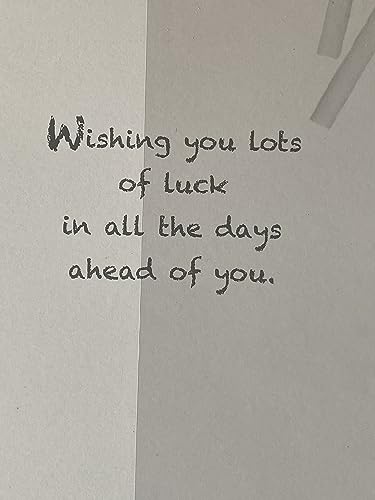 Wishing you lots
of luck
in all the days
ahead of you.